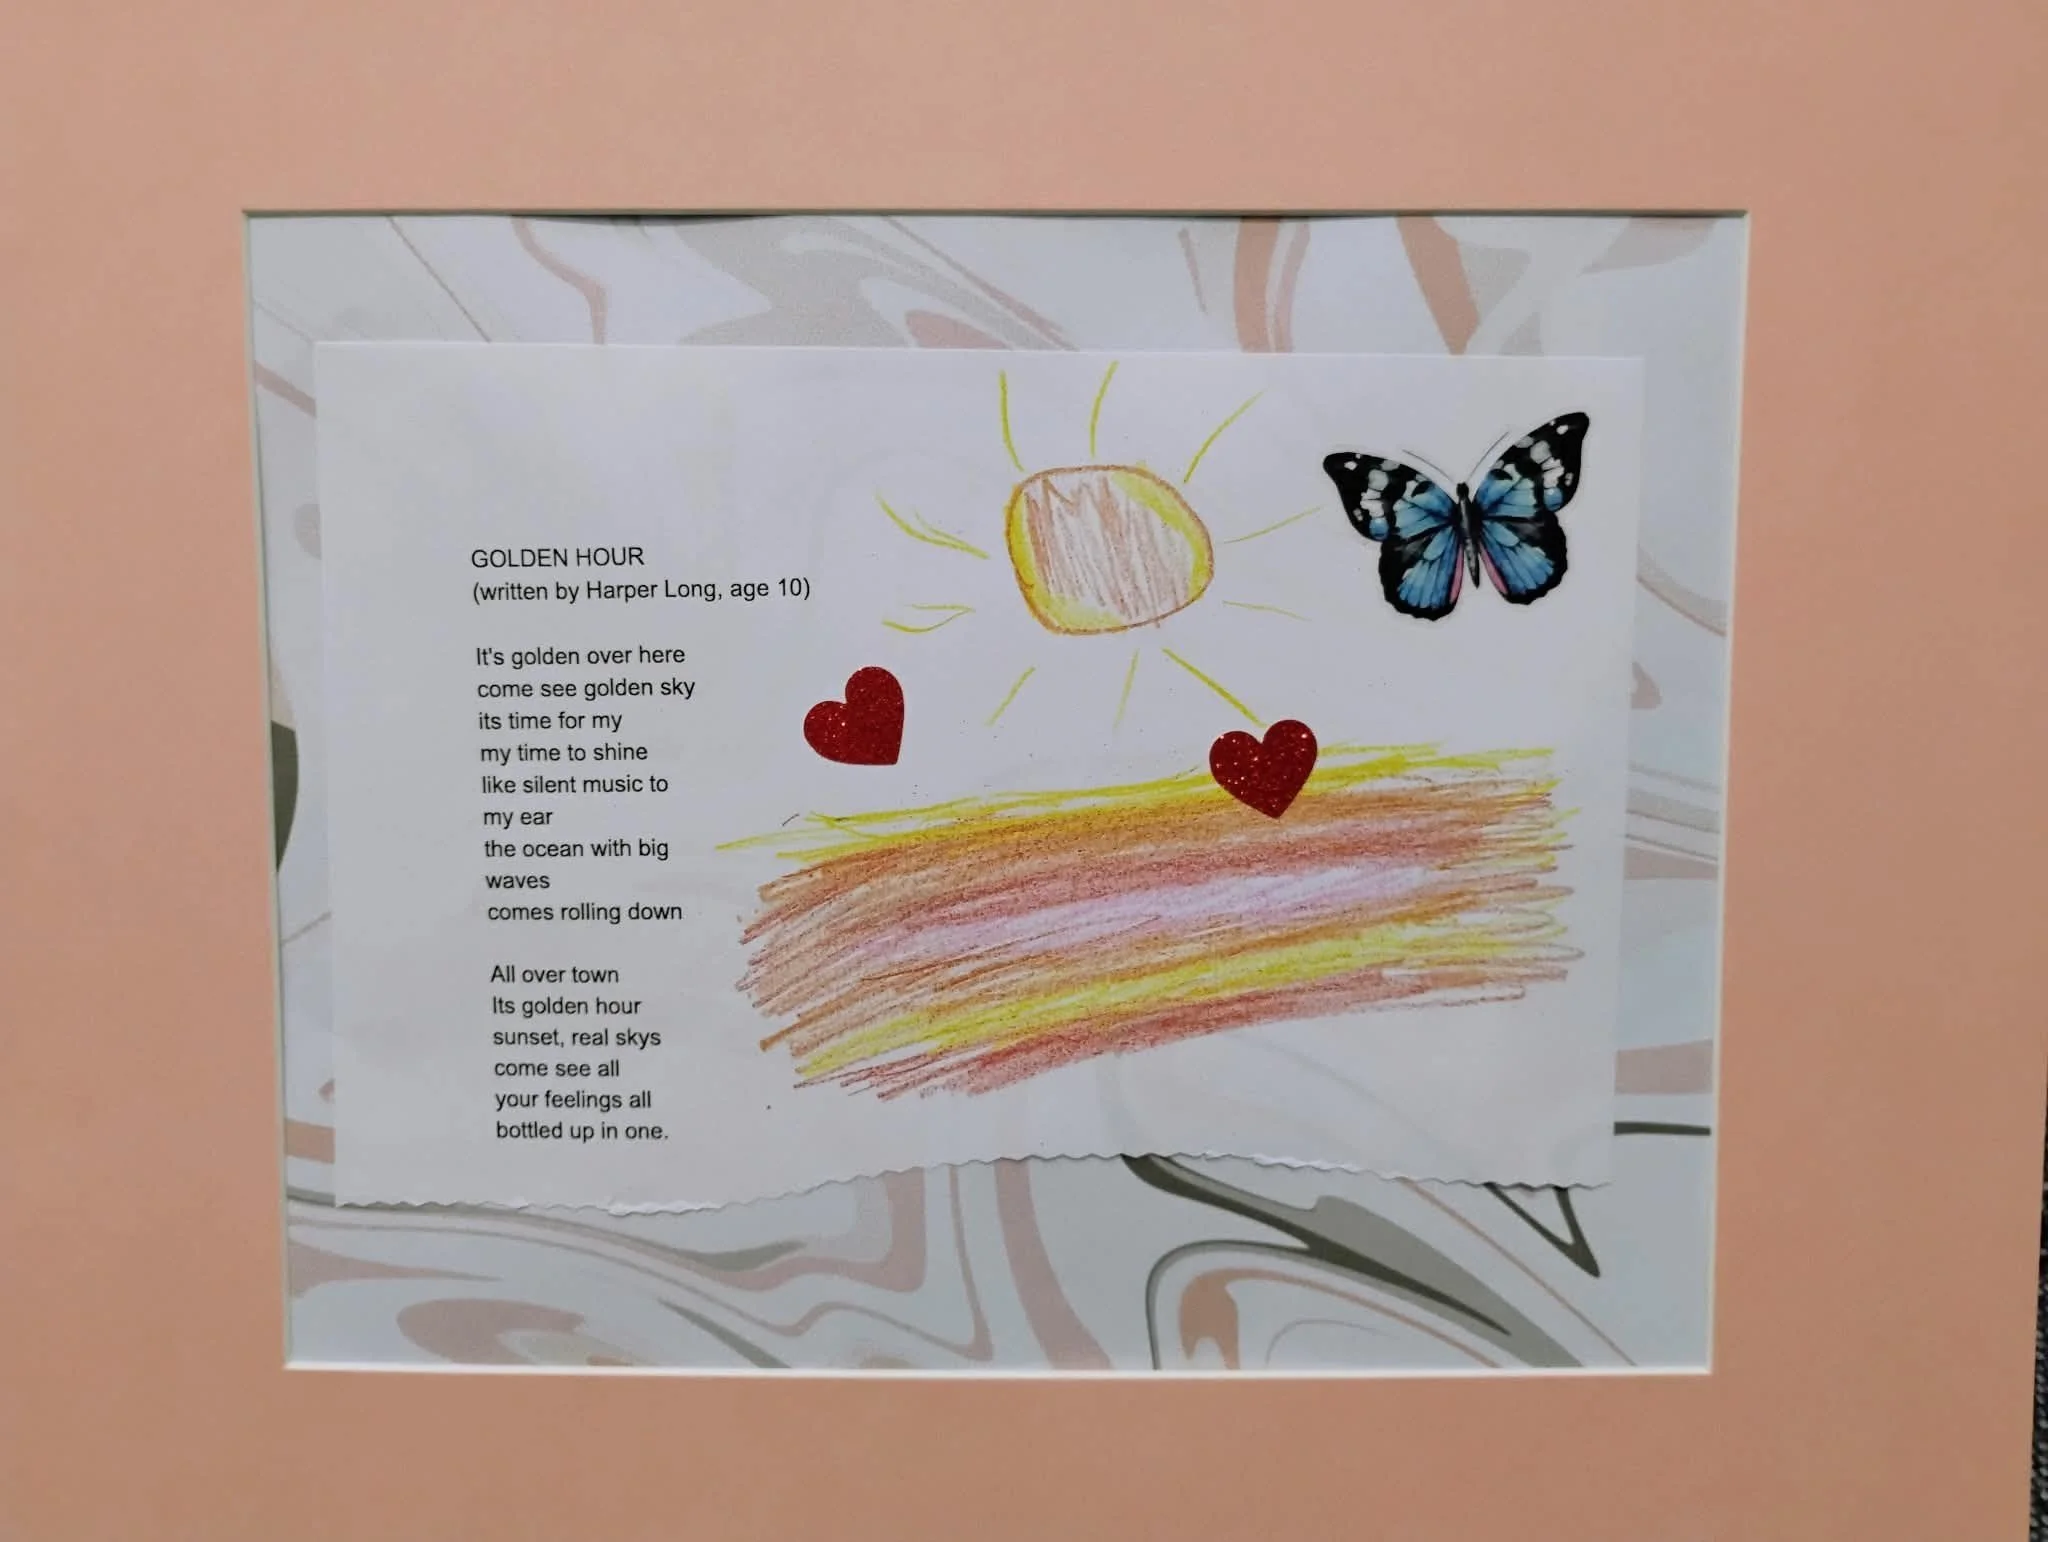 GOLDEN HOUR
(written by Harper Long, age 10)
It's golden over here
come see golden sky
its time for my
my time to shine
like silent music to
my ear
the ocean with big
waves
comes rolling down
All over town
Its golden hour
sunset, real skys
come see all
your feelings all
bottled up in one.